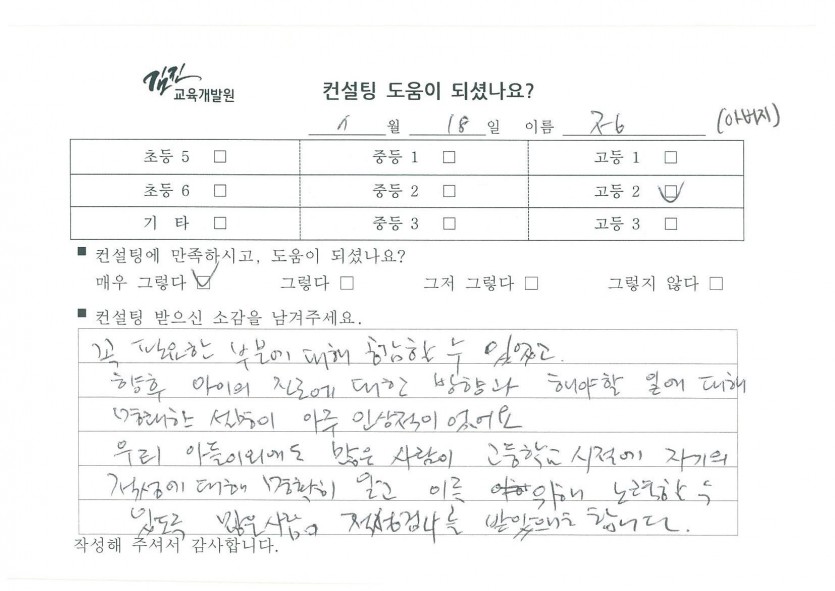 김진
교육개발원
컨설팅 도움이 되셨나요?
월 18 일 이름 (아버지)
초등 5 □ 중등 1 □ 고등 1 □
초등 6 □ 중등 2 □ 고등 2 ☑
기 타 □ 중등 3 □ 고등 3 □
■ 컨설팅에 만족하시고, 도움이 되셨나요?
매우 그렇다 ☑ 그렇다 □ 그저 그렇다 □ 그렇지 않다 □
■ 컨설팅 받으신 소감을 남겨주세요.
꼭 필요한 부분에 대해 공감할 수 있었고.
향후 아이의 진로에 대한 방향과 해야할 일에 대해
명쾌한 설명이 아주 인상적이었어요
우리 아들이외에도 많은 사람이 고등학교 시절에 자기의
적성에 대해 명확히 알고 이를 위해 노력할 수
있도록 많은사람이 적성검사를 받았으면 합니다.
작성해 주셔서 감사합니다.